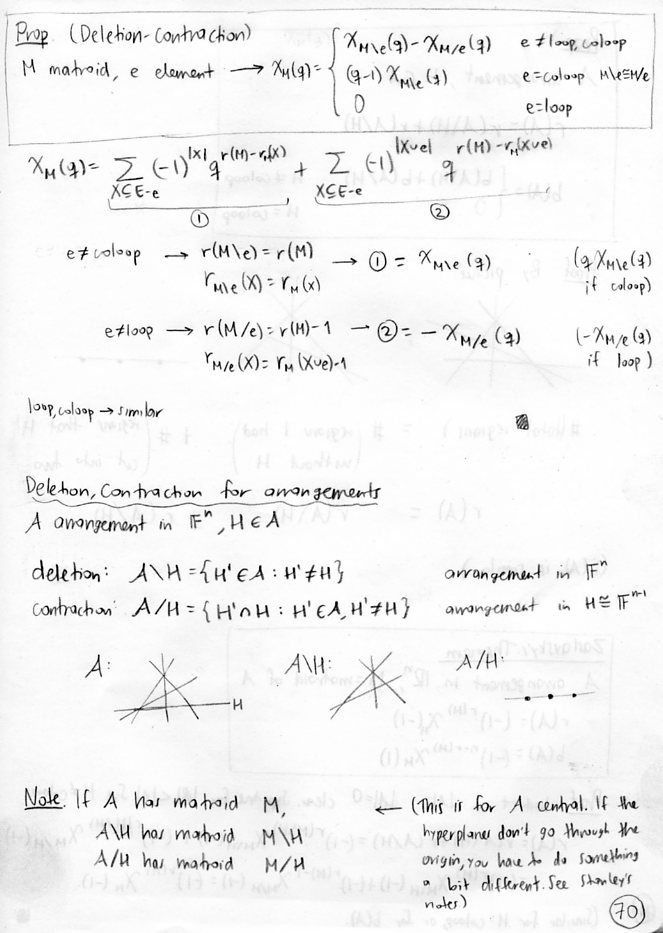 Prop. (Deletion-Contraction)
M matroid, e element ⟶ χ_M(q) = { χ_{M\e}(q) - χ_{M/e}(q) e ≠ loop, coloop
(q-1) χ_{M\e}(q) e = coloop M\e ≅ M/e
0 e = loop
χ_M(q) = ∑_{X⊆E-e} (-1)^{|X|} q^{r(M)-r_M(X)} + ∑_{X⊆E-e} (-1)^{|X∪e|} q^{r(M)-r_M(X∪e)}
① ②
e ≠ coloop → r(M\e) = r(M) → ① = χ_{M\e}(q) (q χ_{M\e}(q)
r_{M\e}(X) = r_M(X) if coloop)
e ≠ loop → r(M/e) = r(M)-1 → ② = -χ_{M/e}(q) (-χ_{M/e}(q)
r_{M/e}(X) = r_M(X∪e)-1 if loop)
loop, coloop → similar
Deletion, Contraction for arrangements
A arrangement in 𝔽^n, H ∈ A
deletion: A\H = {H' ∈ A : H' ≠ H} arrangement in 𝔽^n
contraction: A/H = {H' ∩ H : H' ∈ A, H' ≠ H} arrangement in H ≅ 𝔽^{n-1}
A: H A\H: A/H:
Note. If A has matroid M, ← (This is for A central. If the
A\H has matroid M\H hyperplanes don't go through the
A/H has matroid M/H origin, you have to do something
a bit different. See Stanley's
notes)
70